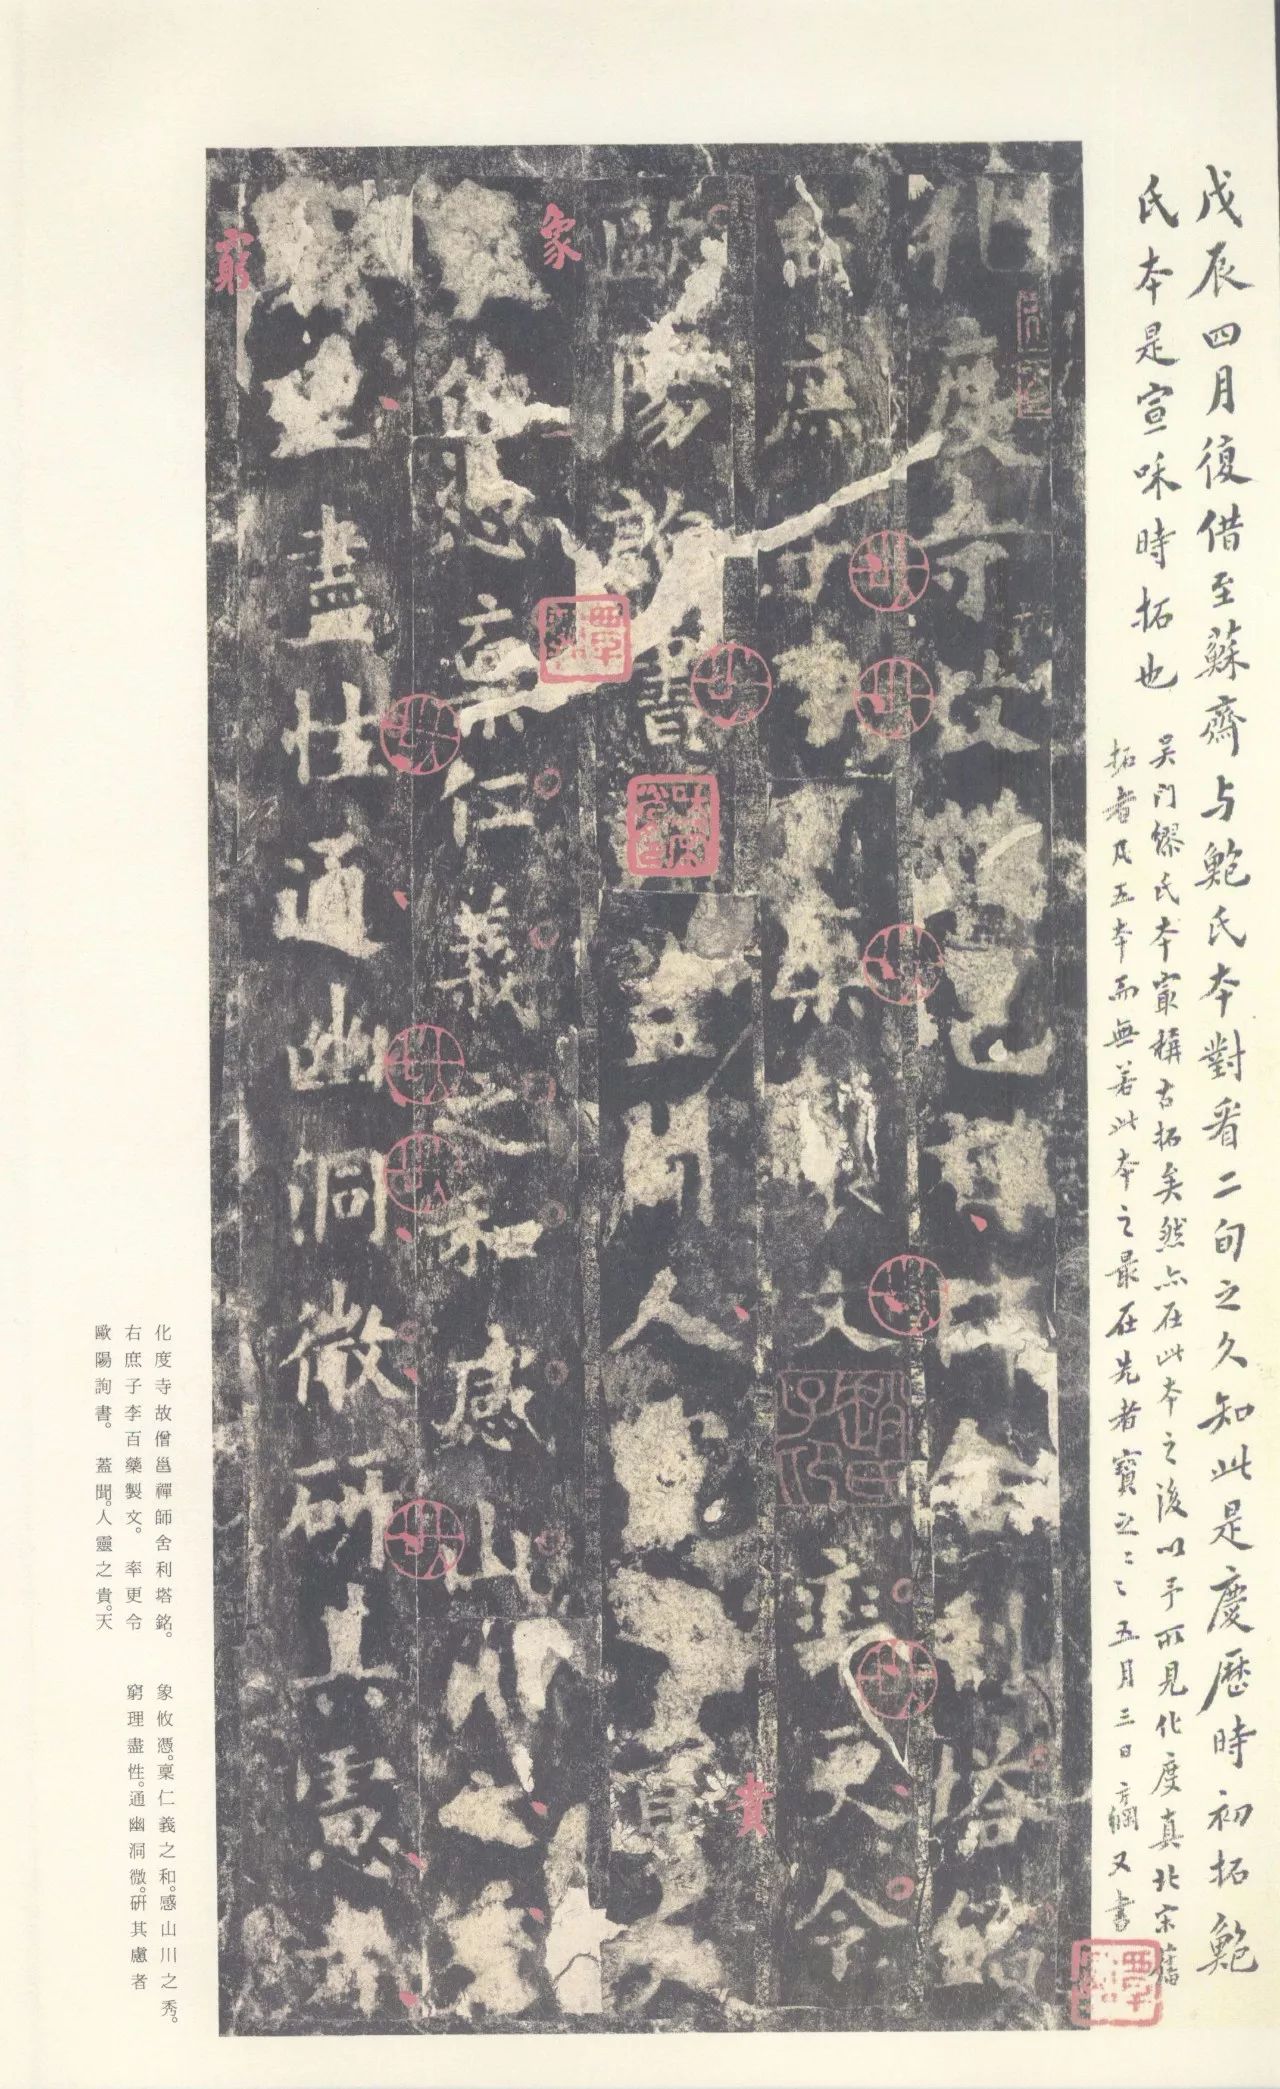 戊辰四月復借至蘇齋与鮑氏本對看二旬之久知此是慶歷時初拓鮑
氏本是宣咊時拓也
吴门繆氏本寂稱古拓矣然亦在此本之後以予所見化度真北宋舊
拓者凡五本而無若此本之最在先者寶之〻〻五月三日方綱又書
化度寺故僧邕禪師舍利塔銘
右庶子李百藥製文
率更令
歐陽詢書
蓋聞人靈
貴
象
攸憑禀仁義之和感山川之秀
窮
理盡性通幽洞微研其慮者
化度寺故僧邕禪師舍利塔銘。
右庶子李百藥製文。率更令
歐陽詢書。蓋聞。人靈之貴。天
象攸憑。稟仁義之和。感山川之秀。
窮理盡性。通幽洞微。研其慮者